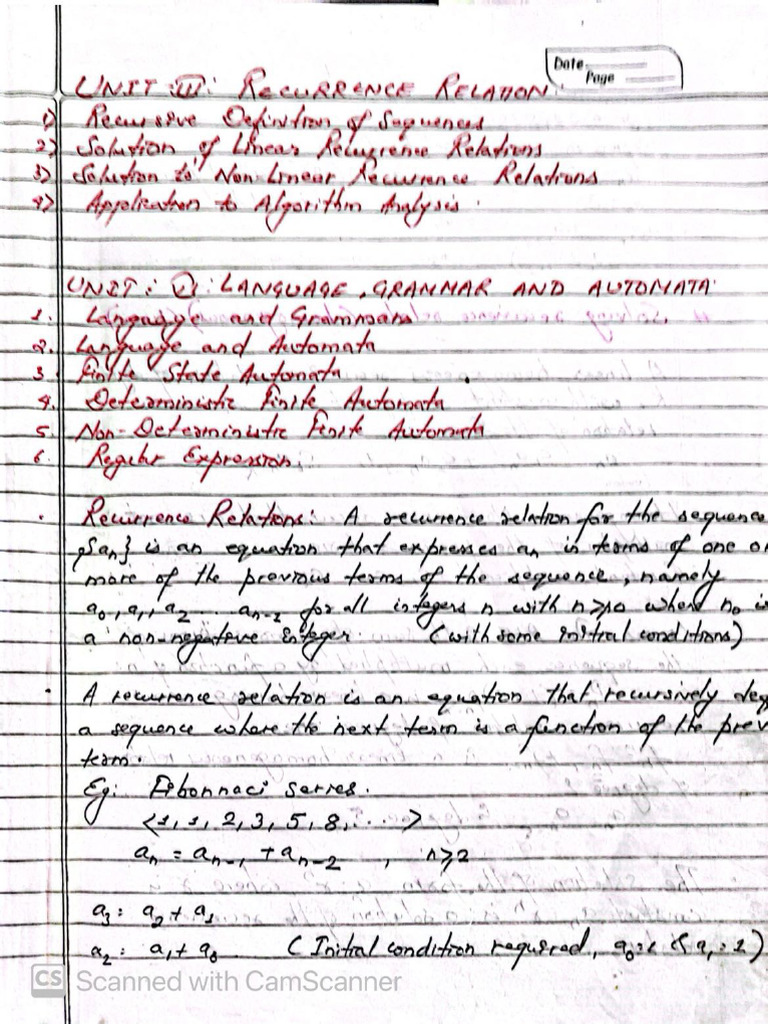 Date
Page
UNIT: III: RECURRENCE RELATION:
1) Recursive Definition of Sequences
2) Solution of Linear Recurrence Relations
3) Solution to Non Linear Recurrence Relations
4) Application to Algorithm Analysis.
UNIT: V: LANGUAGE, GRAMMAR AND AUTOMATA
1. Language and Grammars
2. Language and Automata
3. Finite State Automata
4. Deterministic Finite Automata
5. Non-Deterministic Finite Automata
6. Regular Expression
• Recurrence Relations: A recurrence relation for the sequence
{an} is an equation that expresses an in terms of one or
more of the previous terms of the sequence, namely
a0, a1, a2 ... an-1 for all integers n with n≥n0 where n0 is
a non-negative integer. (with some initial conditions)
• A recurrence relation is an equation that recursively
a sequence where the next term is a function of the prev
term.
Eg: Fibonnaci series.
<1, 1, 2, 3, 5, 8, ... >
an = an-1 + an-2 , n≥2
a3 = a2 + a1
a2 = a1 + a0 (Initial condition required, a0=1 & a1=1)
CS Scanned with CamScanner